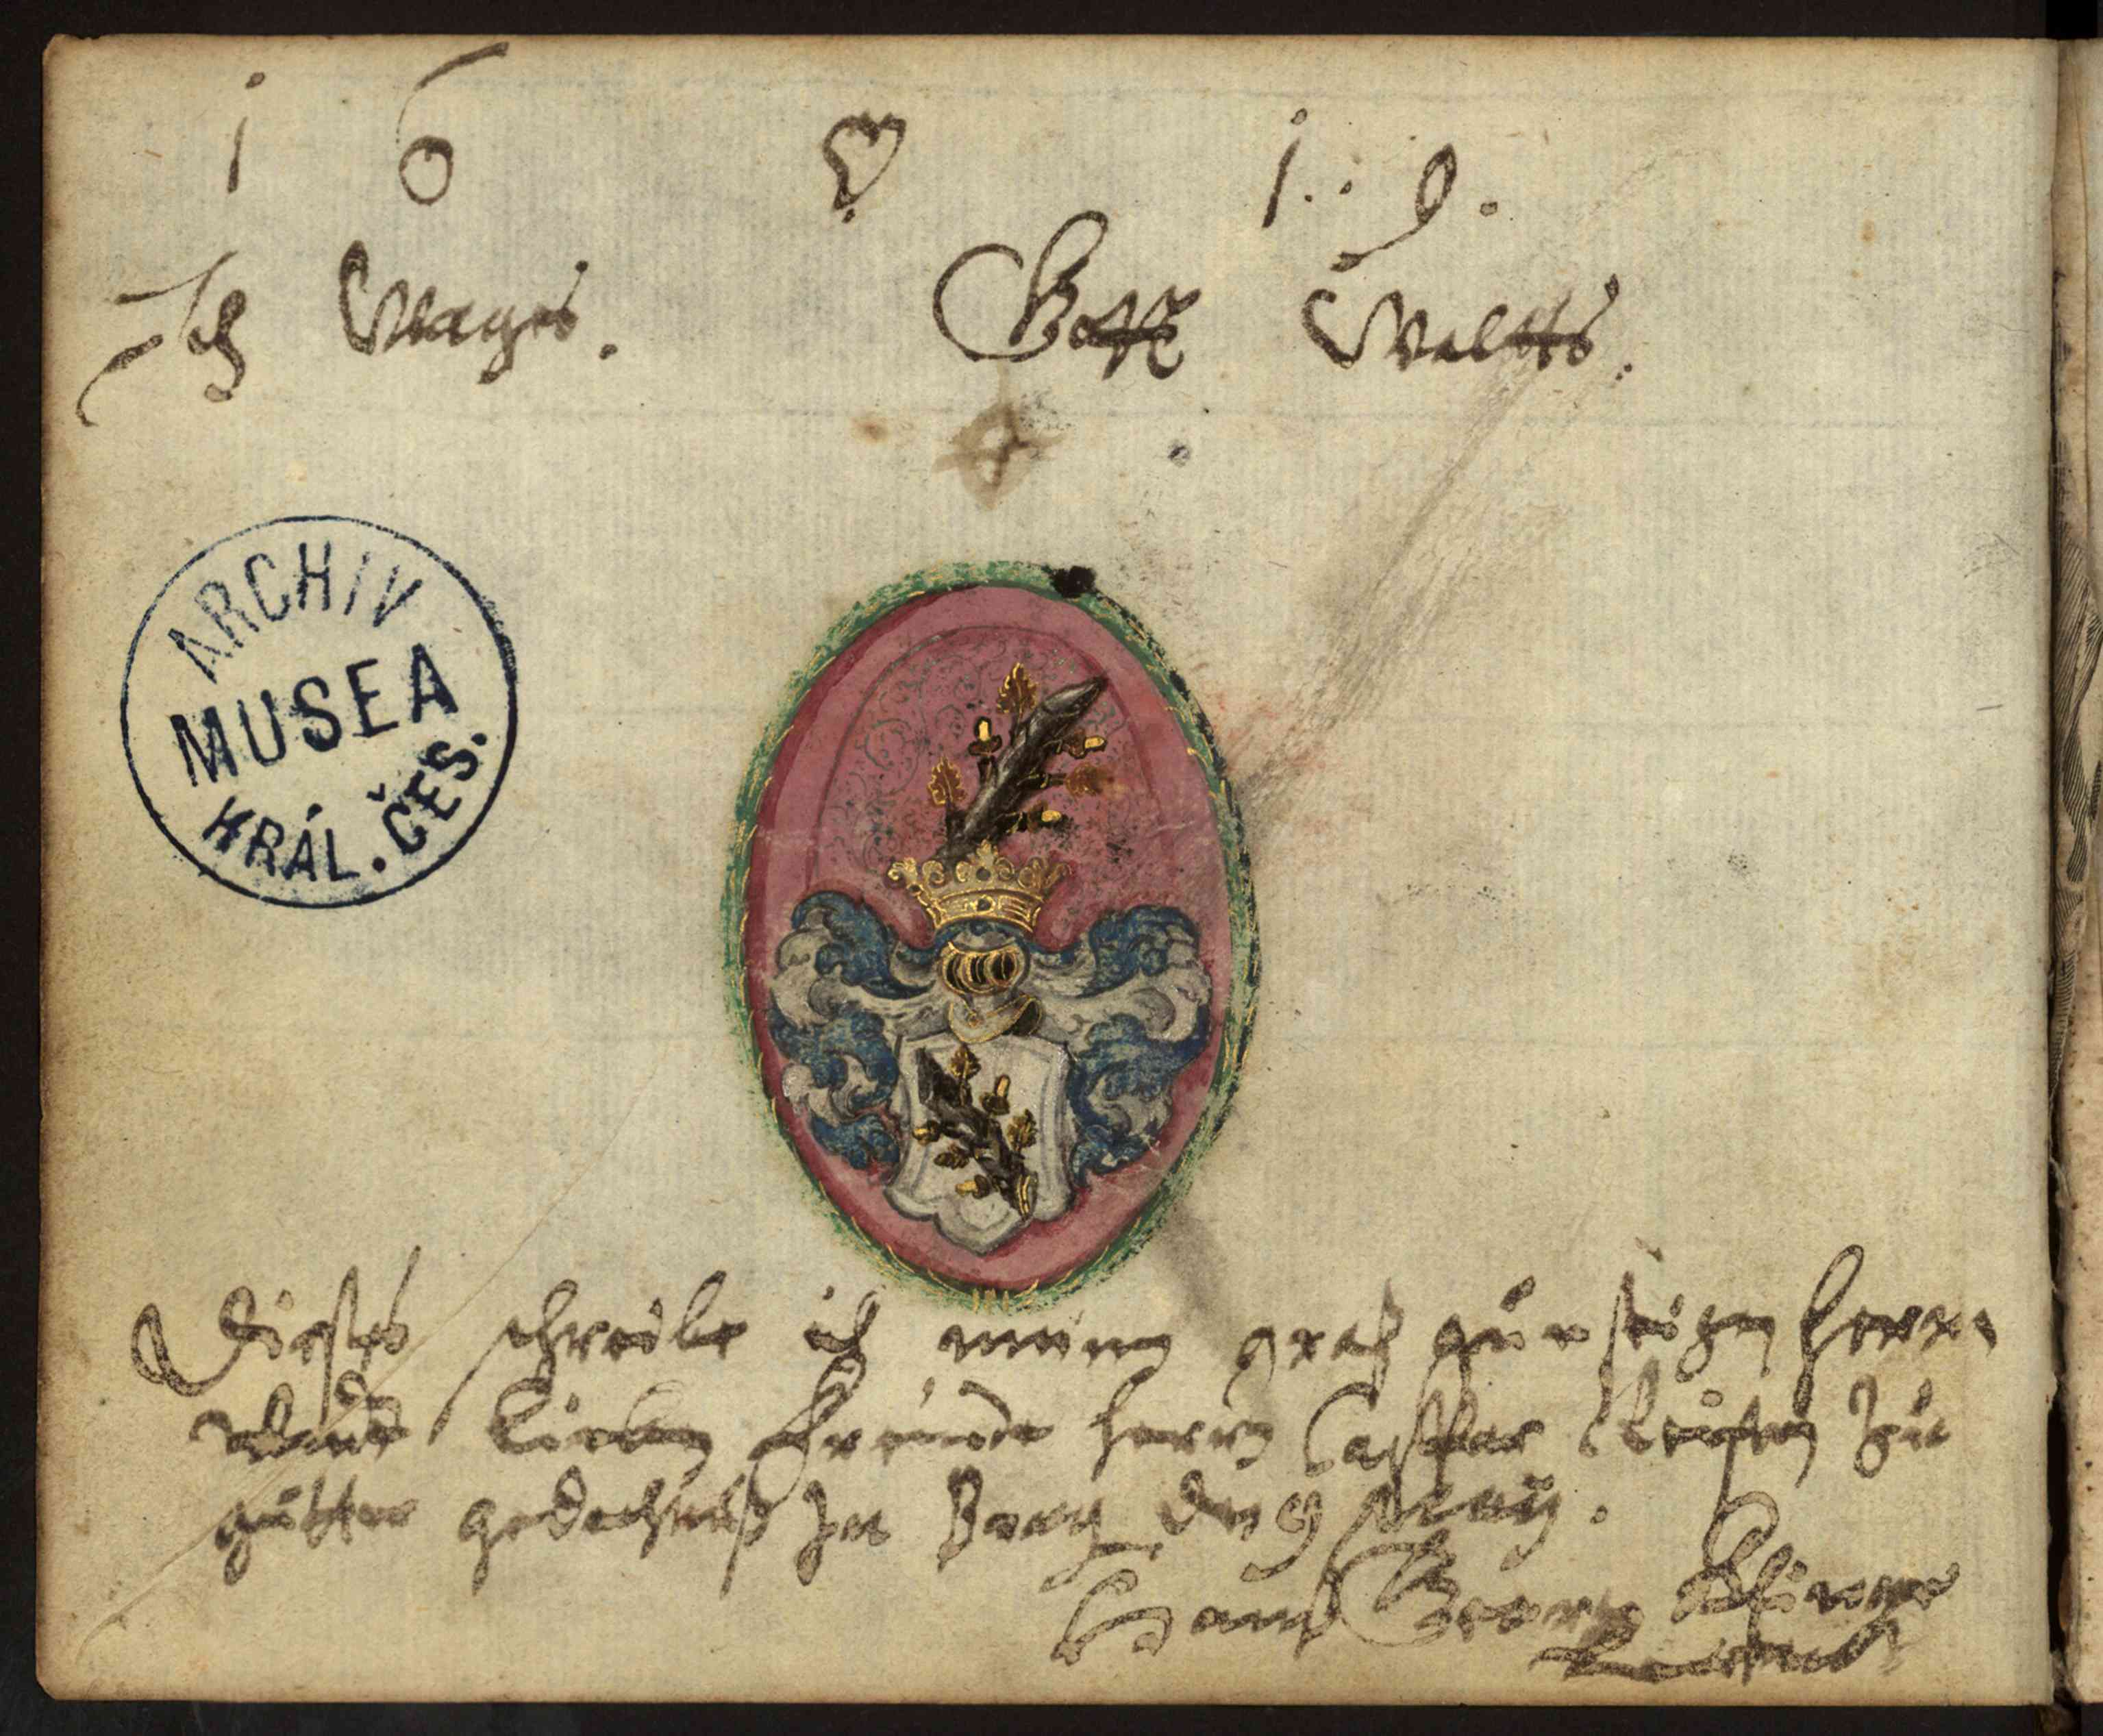 16 19.
Ich Wages. Gott Walltts.
ARCHIV
MUSEA
KRÁL. ČES.
Dieses schreibe ich meinem groß günstigen herrn
vnd Lieben freunde herrn Casspar zu
gutter gedechtnuß In Prag den 9 May.
Hanß Georg